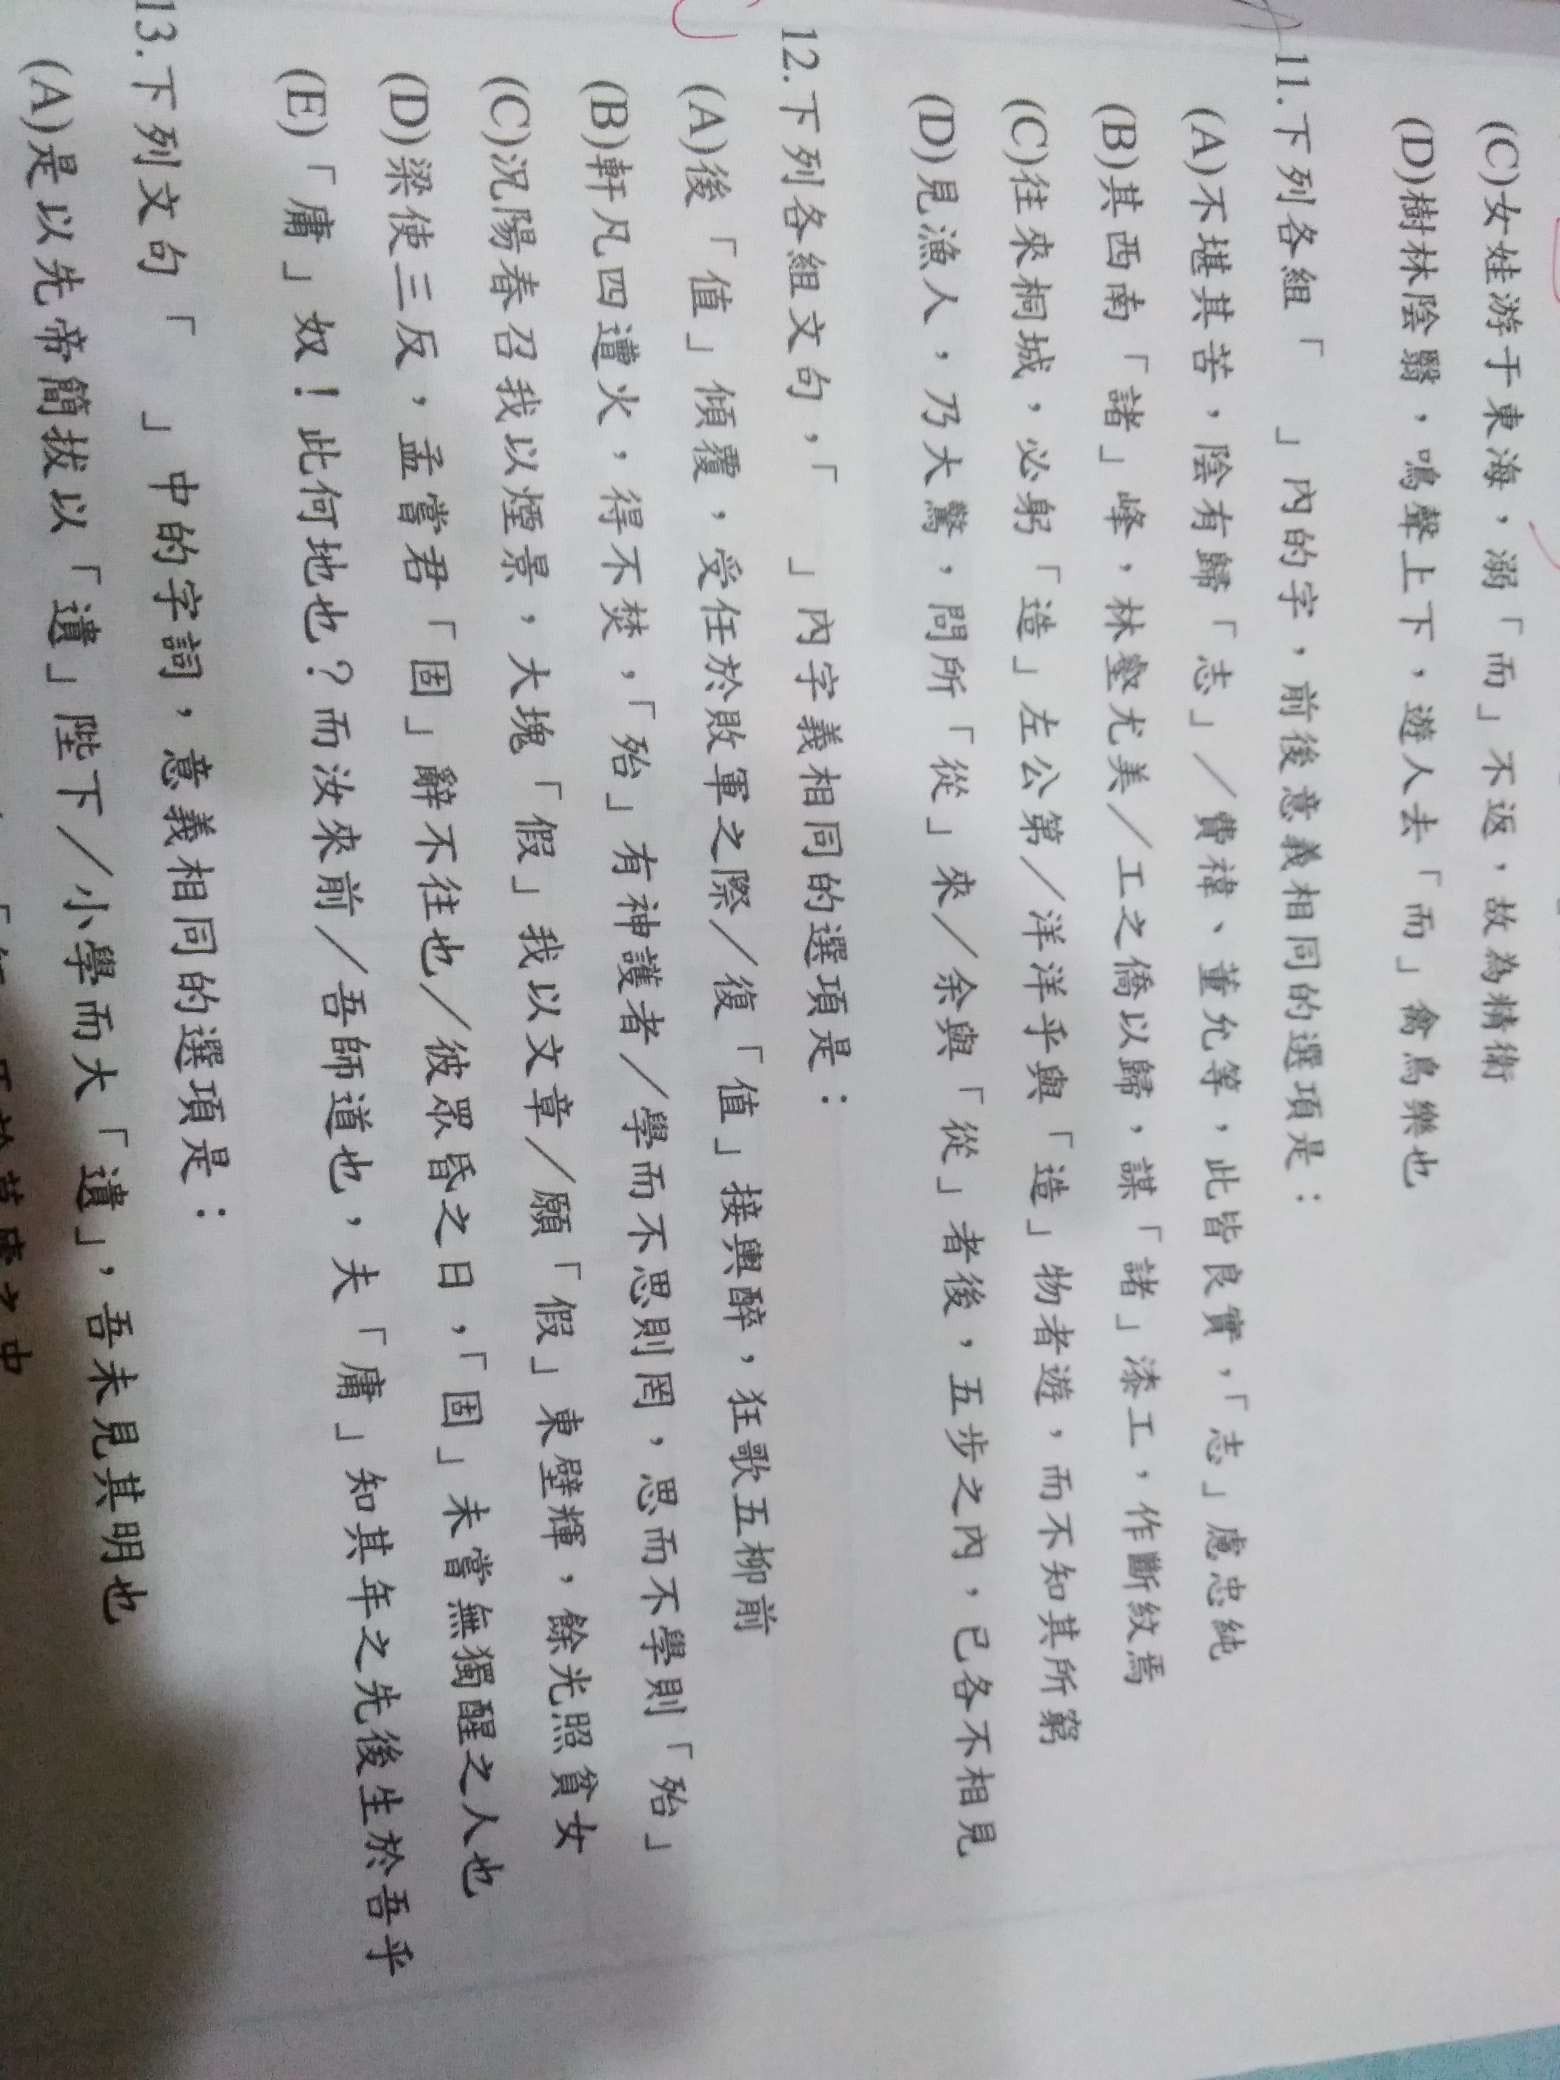 (C)女娃游于東海，溺「而」不返，故為精衛
(D)樹林陰翳，鳴聲上下，遊人去「而」禽鳥樂也
11.下列各組「　」內的字，前後意義相同的選項是：
(A)不堪其苦，陰有歸「志」／費禕、董允等，此皆良實，「志」慮忠純
(B)其西南「諸」峰，林壑尤美／工之僑以歸，謀「諸」漆工，作斷紋焉
(C)往來桐城，必躬「造」左公第／洋洋乎與「造」物者遊，而不知其所窮
(D)見漁人，乃大驚，問所「從」來／余與「從」者後，五步之內，已各不相見
12.下列各組文句，「　」內字義相同的選項是：
(A)後「值」傾覆，受任於敗軍之際／復「值」接輿醉，狂歌五柳前
(B)軒凡四遭火，得不焚，「殆」有神護者／學而不思則罔，思而不學則「殆」
(C)況陽春召我以煙景，大塊「假」我以文章／願「假」東壁輝，餘光照貧女
(D)梁使三反，孟嘗君「固」辭不往也／彼眾昏之日，「固」未嘗無獨醒之人也
(E)「庸」奴！此何地也？而汝來前／吾師道也，夫「庸」知其年之先後生於吾乎
13.下列文句「　」中的字詞，意義相同的選項是：
(A)是以先帝簡拔以「遺」陛下／小學而大「遺」，吾未見其明也